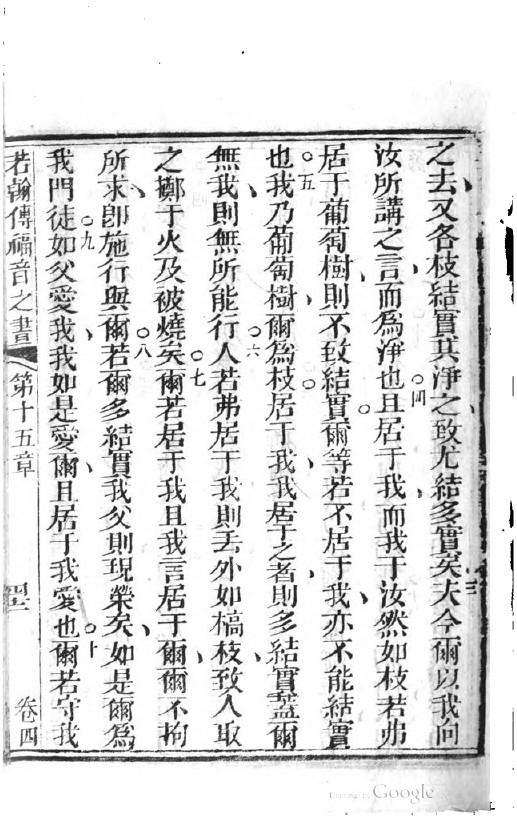 之去又各枝結實其淨之致尤結多實矣夫今爾以我向
三
汝所講之言而爲淨也且居于我而我于汝然如枝若弗
四
居于葡萄樹則不致結實爾等若不居于我亦不能結實
五
也我乃葡萄樹爾爲枝居于我我居于之者則多結實蓋爾
六
無我則無所能行人若弗居于我則丟外如槁枝致人取
七
之擲于火及被燒矣爾若居于我且我言居于爾爾不拘
八
所求卽施行與爾若爾多結實我父則現榮矣如是爾爲
九
我門徒如父愛我我如是愛爾且居于我愛也爾若守我
十
若翰傳福音之書 第十五章 卷四
Google